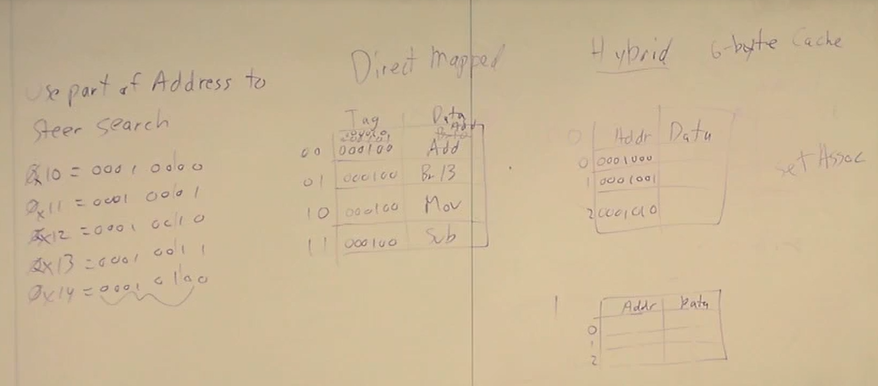 Use part of Address to
Steer search
0x10 = 0001 0000
0x11 = 0001 0001
0x12 = 0001 0010
0x13 = 0001 0011
0x14 = 0001 0100
Direct Mapped
Tag Data
00 000100 Add
01 000100 Br 13
10 000100 Mov
11 000100 Sub
Hybrid 6-byte Cache
0 Addr Data
0 0001000
1 0001001
2 0001010
set Assoc
1 Addr Data
0
1
2